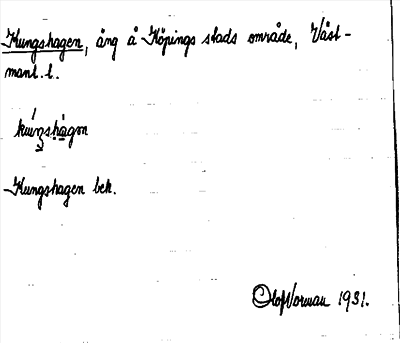 Kungshagen, äng å Köpings stads område, Väst-
manl. l.
kuŋshàgen
Kungshagen bek.
Olof Norman 1931.